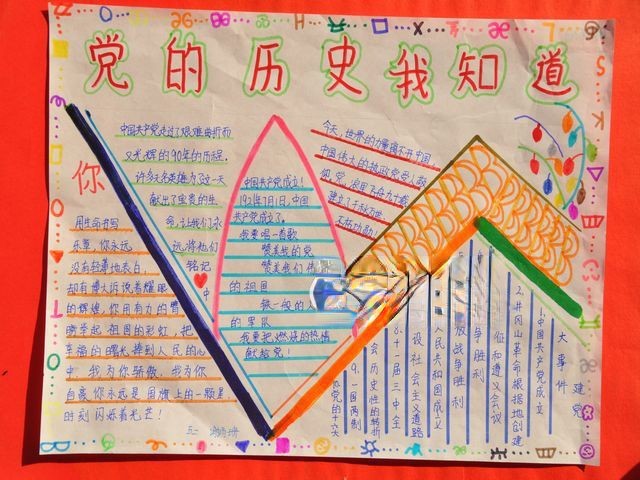 党的历史我知道
中国共产党走过了艰难曲折而
又光辉的90年的历程，
许多英雄为了这一天
献出了宝贵的生
命，让我们永
远将他们
铭记
中
你
用生命书写
乐章，你永远
没有轻薄地表白，
却有博大诉说着耀眼
的辉煌，你用有力的臂
腕举起祖国的彩虹，把
幸福的曙光捧到人民的心
中，我为你骄傲，我为你
自豪，你永远是国旗上的一颗星
时刻闪烁着光芒！
五一
中国共产党成立！
1921年7月1日，中国
共产党成立了。
我要唱一首歌
赞美我的党
赞美我们伟
的祖国
铁一般的人
的军队
我要把燃烧的热情
献给党！
今天，世界的力量离不开中国，
中国伟大的执政党受人敬
建立了千秋万世
大事件
建党
1.中国共产党成立
2.井冈山革命根据地创建
位和遵义会议
争胜利
放战争胜利
人民共和国成立
设社会主义道路
8.十一届三中全
会历史性的转折
9.一国两制
党的十六